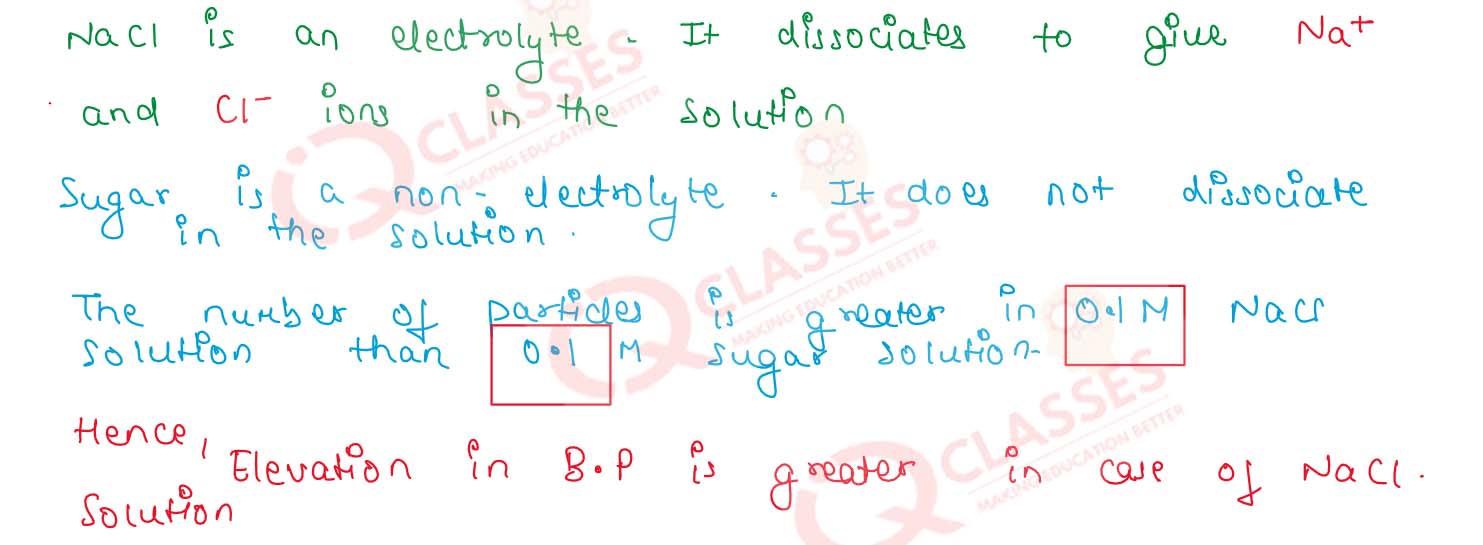 NaCl is an electrolyte. It dissociates to give Na⁺
and Cl⁻ ions in the solution
Sugar is a non-electrolyte. It does not dissociate
in the solution.
The number of particles is greater in 0.1 M NaCl
solution than 0.1 M sugar solution.
Hence,
Elevation in B.P is greater in case of NaCl.
Solution
IQ CLASSES
MAKING EDUCATION BETTER
IQ CLASSES
MAKING EDUCATION BETTER
IQ CLASSES
MAKING EDUCATION BETTER